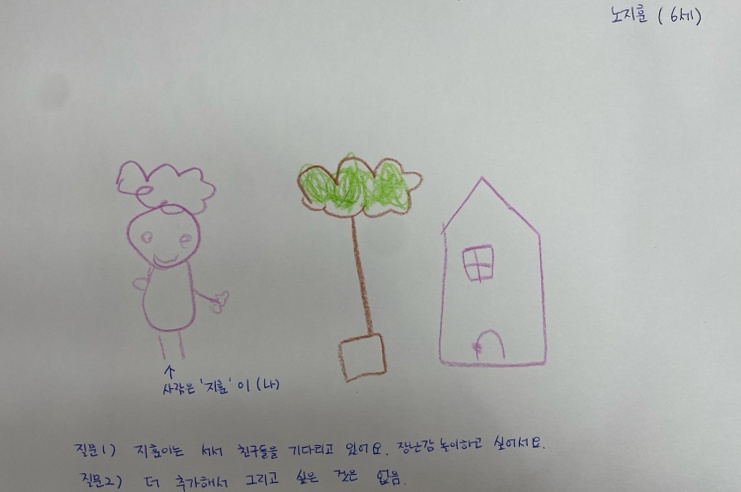 노지훈 (6세)
사람은 '지훈'이 (나)
질문1) 지훈이는 서서 친구들을 기다리고 있어요. 장난감 놀이하고 싶어서요.
질문2) 더 추가해서 그리고 싶은 것은 없음.